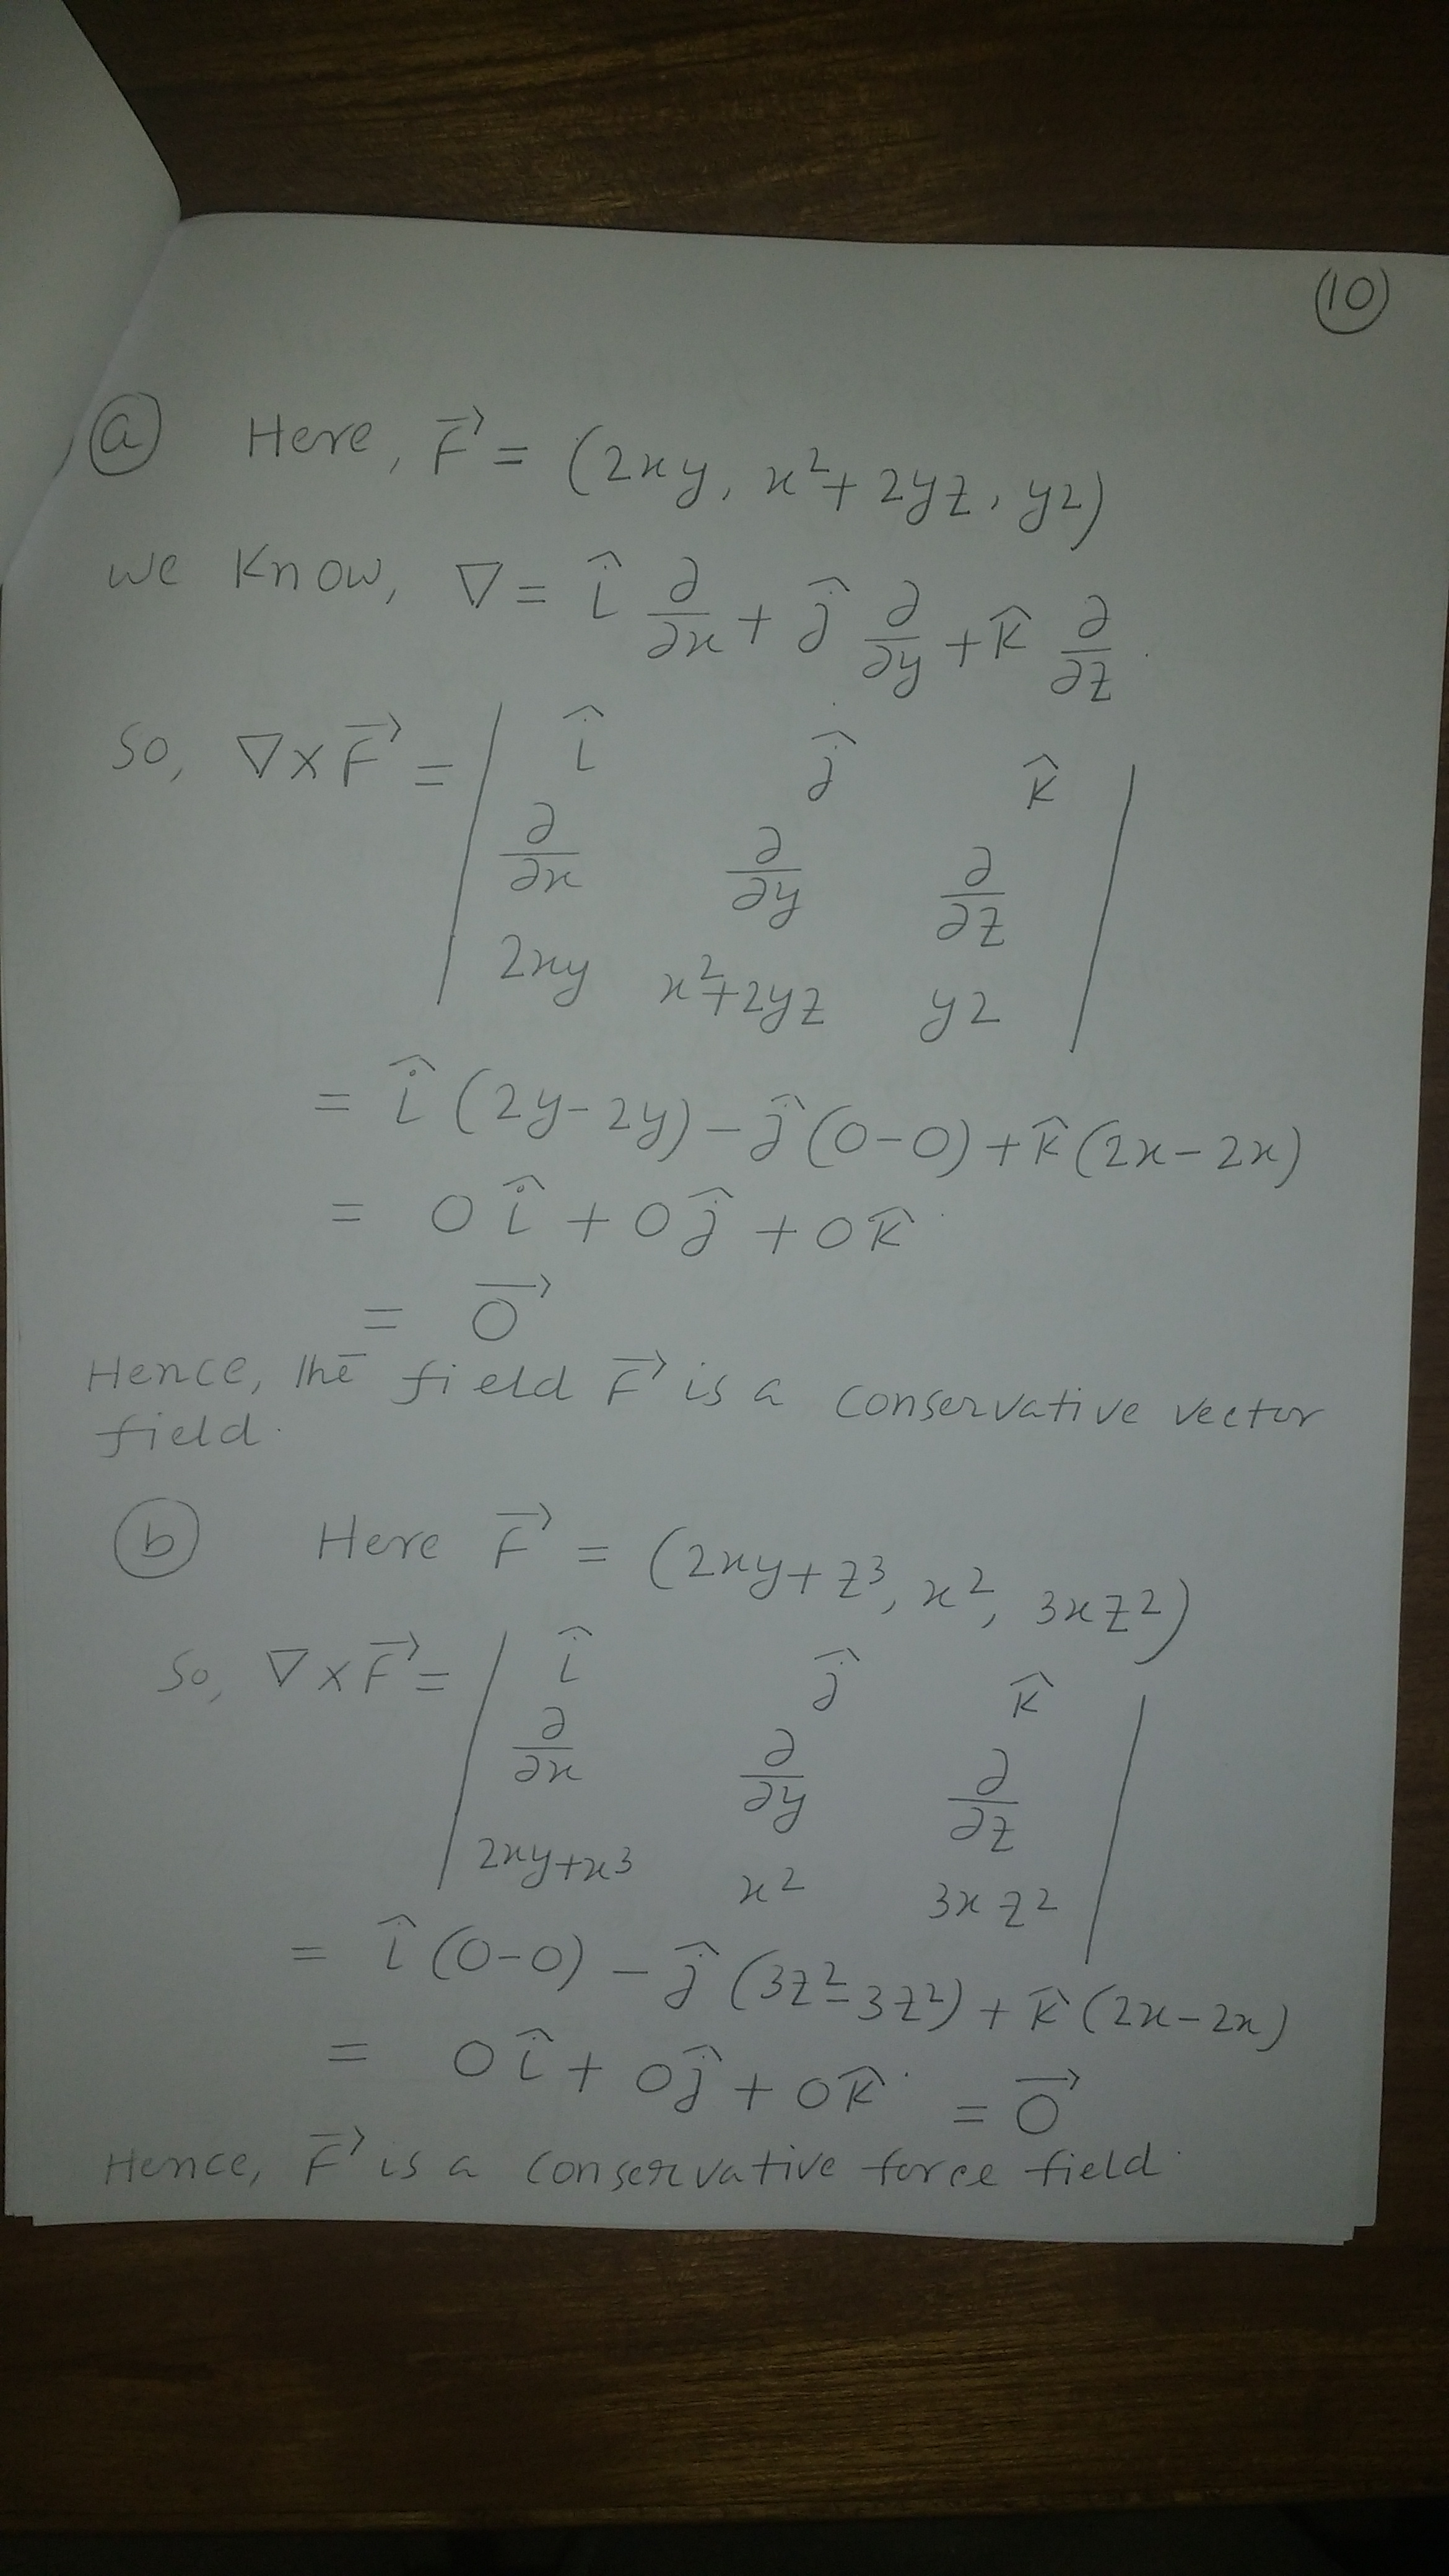 (10)
(a) Here, F⃗ = (2xy, x²+ 2yz, y2)
we know, ∇ = î ∂/∂x + ĵ ∂/∂y + k̂ ∂/∂z
So, ∇×F⃗ = | î ĵ k̂ |
∂/∂x ∂/∂y ∂/∂z
2xy x²+2yz y2
= î (2y-2y) - ĵ (0-0) + k̂ (2x-2x)
= 0 î + 0 ĵ + 0 k̂
= 0⃗
Hence, the field F⃗ is a conservative vector
field.
(b) Here F⃗ = (2xy+z³, x², 3xz²)
So, ∇×F⃗ = | î ĵ k̂ |
∂/∂x ∂/∂y ∂/∂z
2xy+x³ x² 3xz²
= î (0-0) - ĵ (3z²-3z²) + k̂ (2x-2x)
= 0î + 0ĵ + 0k̂ = 0⃗
Hence, F⃗ is a conservative force field.